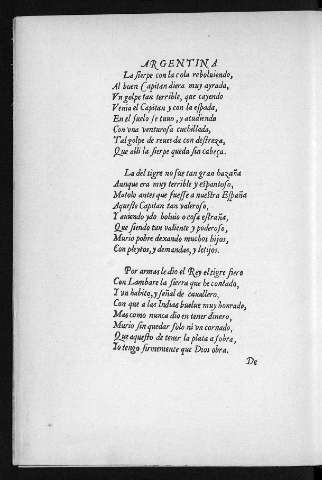 ARGENTINA
La sierpe con la cola reboluiendo,
Al buen Capitan diera muy ayrada,
Vn golpe tan terrible, que cayendo
Venia el Capitan y con la espada,
En el suelo se tuuo, y acudiendo
Con vna venturosa cuchillada,
Tal golpe de reues da con destreza,
Que alli la sierpe queda sin cabeça.
La del tigre no fue tan gran hazaña
Aunque era muy terrible y espantoso,
Matolo antes que fuesse a nuestra España
Aqueste Capitan tan valeroso,
Y auiendo ydo boluio o cosa estraña,
Que siendo tan valiente y poderoso,
Murio pobre dexando muchos hijos,
Con pleytos, y demandas, y letijos.
Por armas le dio el Rey el tigre fiero
Con Lambare la sierra que he contado,
Y vn habito, y señal de cauallero,
Con que a las Indias buelue muy honrado,
Mas como nunca dio en tener dinero,
Murio sin quedar solo ni vn cornado,
Que aquesto de tener la plata a sobra,
Yo tengo firmemente que Dios obra.
De